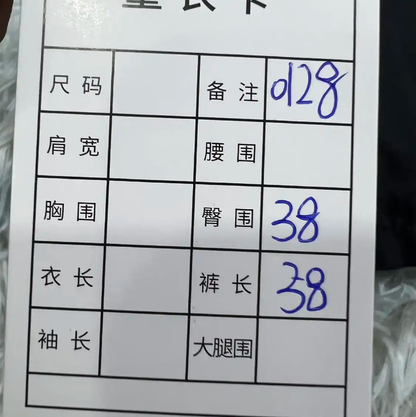 量长卡
尺码 备注 0128
肩宽 腰围
胸围 臀围 38
衣长 裤长 38
袖长 大腿围